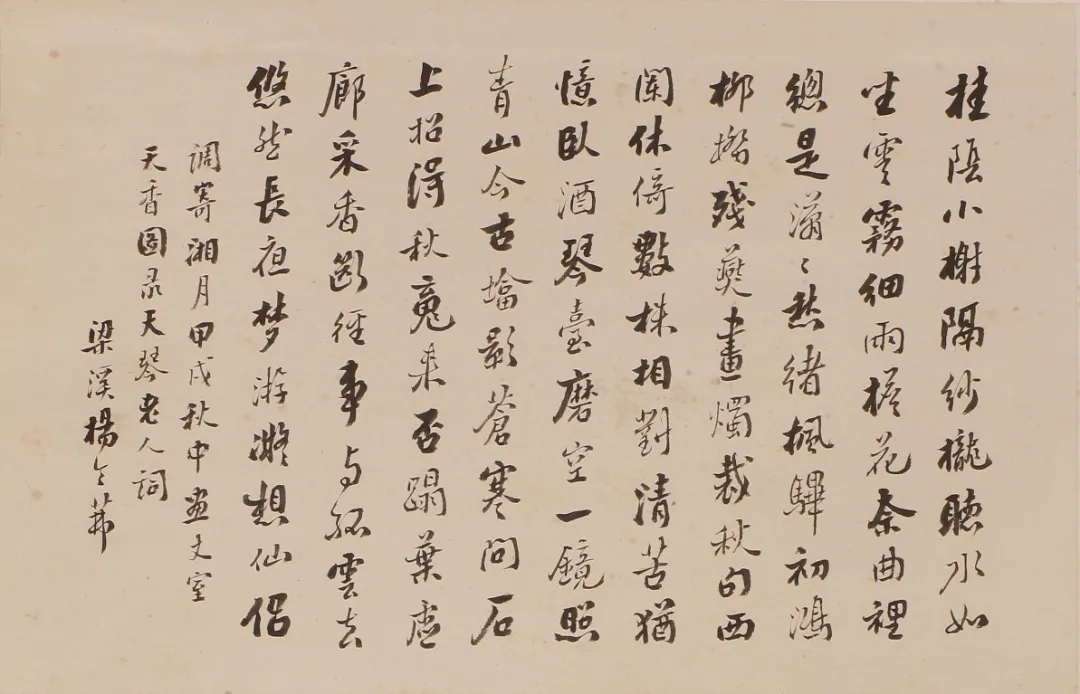 桂陰小榭隔紗櫳聽水如
坐雲霧細雨檐花曲裡
總是瀟〻愁緒楓驛初鴻
柳橋殘燕畫燭裁秋句西
闌休倚數株相對清苦猶
憶臥酒琴臺磨空一鏡照
青山今古墖影蒼寒問石
上招得秋䰟来否蹋葉虛
廊采香斷徑事与孤雲去
悠然長夜梦游凝想仙侶
調寄湘月甲戌秋中畫丈室
天香圖录天琴老人詞
梁溪楊令茀